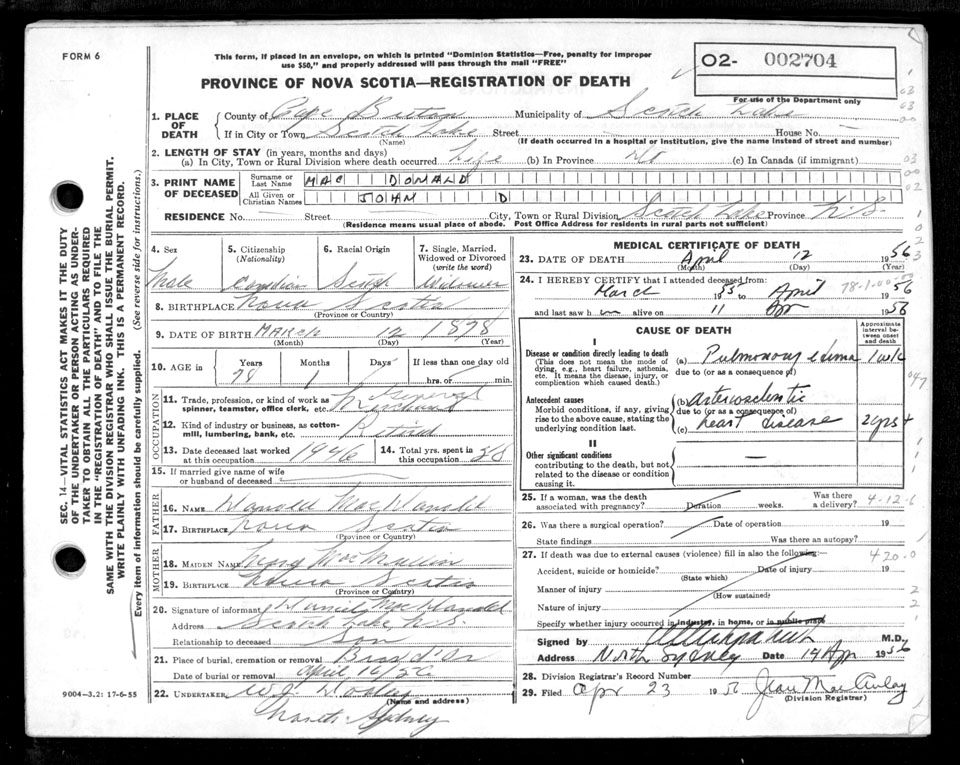 FORM 6
This form, if placed in an envelope, on which is printed "Dominion Statistics—Free, penalty for improper
use $50," and properly addressed will pass through the mail "FREE"
PROVINCE OF NOVA SCOTIA—REGISTRATION OF DEATH
02- 002704
For use of the Department only
1. PLACE OF DEATH
County of Cape Breton Municipality of Scotch Lake
If in City or Town Scotch Lake Street House No.
(Name) (If death occurred in a hospital or institution, give the name instead of street and number)
2. LENGTH OF STAY (in years, months and days)
(a) In City, Town or Rural Division where death occurred Life (b) In Province (c) In Canada (if immigrant)
3. PRINT NAME OF DECEASED
Surname or Last Name MAC DONALD
All Given or Christian Names JOHN D
RESIDENCE No. Street City, Town or Rural Division Scotch Lake Province N.S.
(Residence means usual place of abode. Post Office Address for residents in rural parts not sufficient)
4. Sex Male
5. Citizenship (Nationality) Canadian
6. Racial Origin Scotch
7. Single, Married, Widowed or Divorced (write the word) Widower
8. BIRTHPLACE Nova Scotia
(Province or Country)
9. DATE OF BIRTH MARCH 12 1878
(Month) (Day) (Year)
10. AGE in Years Months Days If less than one day old
78 1 hrs. or min.
OCCUPATION
11. Trade, profession, or kind of work as spinner, teamster, office clerk, etc. General Merchant
12. Kind of industry or business, as cotton-mill, lumbering, bank, etc. Retired
13. Date deceased last worked at this occupation 1946
14. Total yrs. spent in this occupation 38
15. If married give name of wife or husband of deceased
FATHER
16. NAME
17. BIRTHPLACE Nova Scotia
(Province or Country)
MOTHER
18. MAIDEN NAME
19. BIRTHPLACE Nova Scotia
(Province or Country)
20. Signature of informant
Address Scotch Lake, N.S.
Relationship to deceased Son
21. Place of burial, cremation or removal Bras d'Or
Date of burial or removal April 16/56
22. UNDERTAKER W.J. Dooley
(Name and address)
North Sydney
MEDICAL CERTIFICATE OF DEATH
23. DATE OF DEATH April 12 1956
(Month) (Day) (Year)
24. I HEREBY CERTIFY that I attended deceased from:
March 1955 to April 1956
78-1-00
and last saw h im alive on 11 Apr 1956
CAUSE OF DEATH
Approximate interval between onset and death
I
Disease or condition directly leading to death
(This does not mean the mode of dying, e.g., heart failure, asthenia, etc. It means the disease, injury, or complication which caused death.)
(a) Pulmonary edema 1 wk
due to (or as a consequence of)
Antecedent causes
Morbid conditions, if any, giving rise to the above cause, stating the underlying condition last.
(b) arteriosclerotic
due to (or as a consequence of)
(c) heart disease 2 yrs +
II
Other significant conditions
contributing to the death, but not related to the disease or condition causing it.
25. If a woman, was the death associated with pregnancy? Duration weeks. Was there a delivery? 4-12-6
26. Was there a surgical operation? Date of operation 19
State findings Was there an autopsy?
27. If death was due to external causes (violence) fill in also the following:— 420.0
Accident, suicide or homicide? Date of injury 19
(State which)
Manner of injury
(How sustained)
Nature of injury
Specify whether injury occurred in industry, in home, or in public place
Signed by M.D.
Address North Sydney Date 14 Apr 1956
28. Division Registrar's Record Number
29. Filed Apr 23 1956 Jean MacAulay
(Division Registrar)
SEC. 14—VITAL STATISTICS ACT MAKES IT THE DUTY
OF THE UNDERTAKER OR PERSON ACTING AS UNDER-
TAKER TO OBTAIN ALL THE PARTICULARS REQUIRED
IN THE "REGISTRATION OF DEATH" AND TO FILE THE
SAME WITH THE DIVISION REGISTRAR WHO SHALL ISSUE THE BURIAL PERMIT.
WRITE PLAINLY WITH UNFADING INK. THIS IS A PERMANENT RECORD.
Every item of information should be carefully supplied. (See reverse side for instructions.)
9004—3.2: 17-6-55